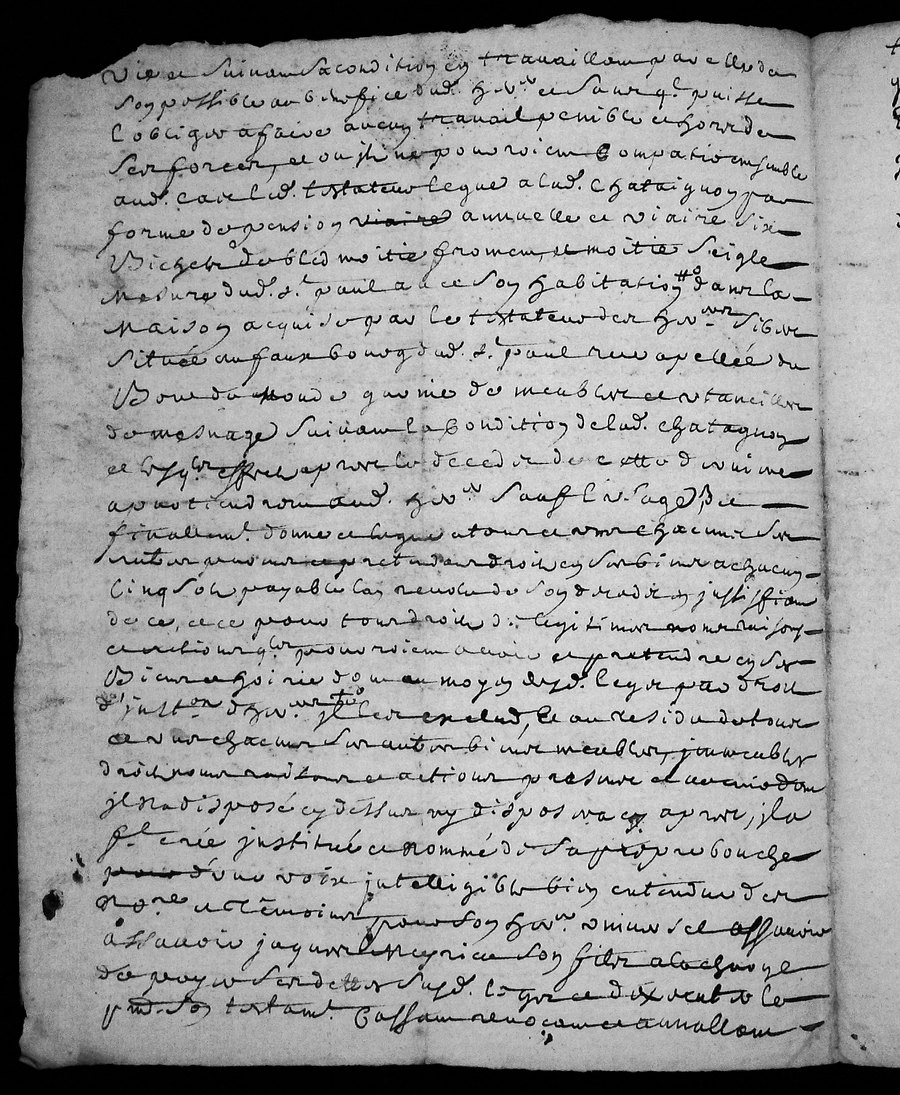 vie et suivant sa condition en travaillant par elle de
son possible au benefice dud. her.er et sans q.l puisse
l obliger a faire aucun travail penible et hors de
ses forces, et ou ils ne pourroient compatir ensemble
aud. cas led. testateur legue a lad. Chataignon par
forme de pension viaire annuelle et viaire six
Bichets de bled moitie froment et moitie seigle
mesure dud. s.t paul avec son habitation dans la
Maison acquise par le testateur des her.ers Sibert
Située au fauxbourg dud. s.t paul rue apellée du
Bout du monde garnie de meubles et utancilles
de mesnage suivant la Condition de lad. chatagnon
et lesq.ls effets apres le decedz de cette derniere
apartiendront aud. her.er sauf l usage, Et
finallem.t donne et legue a tous et uns chacuns ses
autres pretendants droit en ses biens a chacun
Cinq sols payable lan revolu de son decedz en justifiant
de ce, et ce pour tous droits de legitimes noms raisons
et actions q.ls pourroient avoir et pretendre en ses
Biens et hoirie dont au moyen desd. legs par droit
d'inston d'her.ers il les exclud, Et au residu de tous
et uns chacuns ses autres biens meubles, immeubles
droits noms raisons et actions presents et avenir dont
il n a disposé cy dessus ny disposera cy apres, il a
f.t crée institué et nommé de sa propre bouche
d'une voix intelligible bien entendue des
no.re et témoins pour son her.er universel
assavoir jaques Meyrieu son fils a la charge
de payer ses dettes susd. legs et d'exécuter le
p.nt son testam.t Cassant revocant et annullant